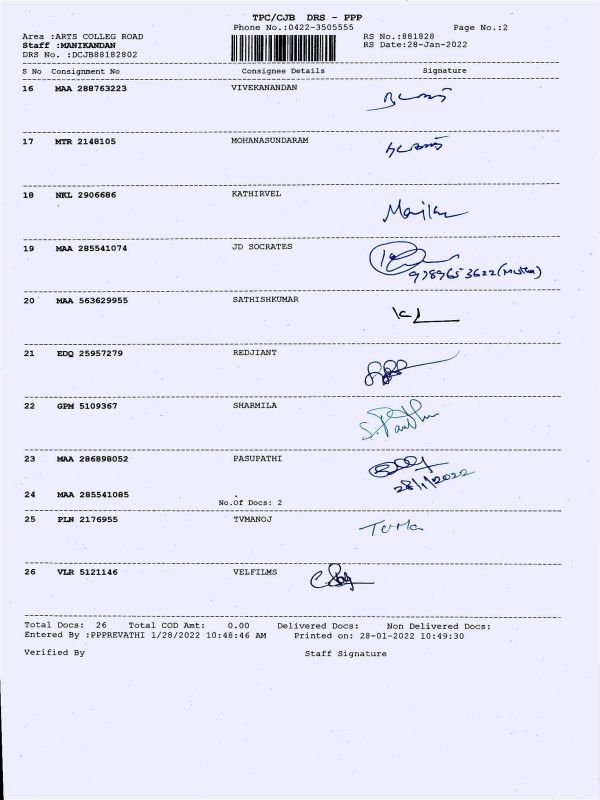 TPC/CJB DRS - PPP
Phone No.:0422-3505555 Page No.:2
Area :ARTS COLLEG ROAD RS No.:881828
Staff :MANIKANDAN RS Date:28-Jan-2022
DRS No. :DCJB88182802
S No Consignment No Consignee Details Signature
16 MAA 288763223 VIVEKANANDAN
17 MTR 2148105 MOHANASUNDARAM
18 NKL 2906686 KATHIRVEL
19 MAA 285541074 JD SOCRATES
9789653622
20 MAA 563629955 SATHISHKUMAR
21 EDQ 25957279 REDJIANT
22 GPM 5109367 SHARMILA
23 MAA 286898052 PASUPATHI
28/1/2022
24 MAA 285541085
No.Of Docs: 2
25 PLN 2176955 TVMANOJ
26 VLR 5121146 VELFILMS
Total Docs: 26 Total COD Amt: 0.00 Delivered Docs: Non Delivered Docs:
Entered By :PPPREVATHI 1/28/2022 10:48:46 AM Printed on: 28-01-2022 10:49:30
Verified By Staff Signature